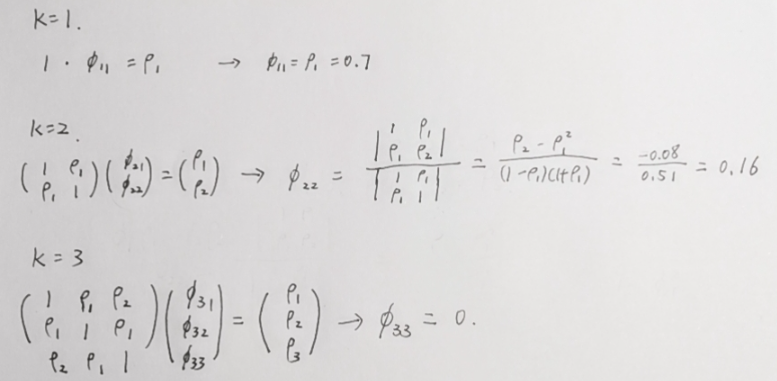 k=1.
1 · ϕ₁₁ = ρ₁ → ϕ₁₁ = ρ₁ = 0.7
k=2.
(1 ρ₁; ρ₁ 1)(ϕ₂₁; ϕ₂₂) = (ρ₁; ρ₂) → ϕ₂₂ = |1 ρ₁; ρ₁ ρ₂| / |1 ρ₁; ρ₁ 1| = (ρ₂ - ρ₁²) / ((1-ρ₁)(1+ρ₁)) = -0.08 / 0.51 = 0.16
k = 3
(1 ρ₁ ρ₂; ρ₁ 1 ρ₁; ρ₂ ρ₁ 1)(ϕ₃₁; ϕ₃₂; ϕ₃₃) = (ρ₁; ρ₂; ρ₃) → ϕ₃₃ = 0.